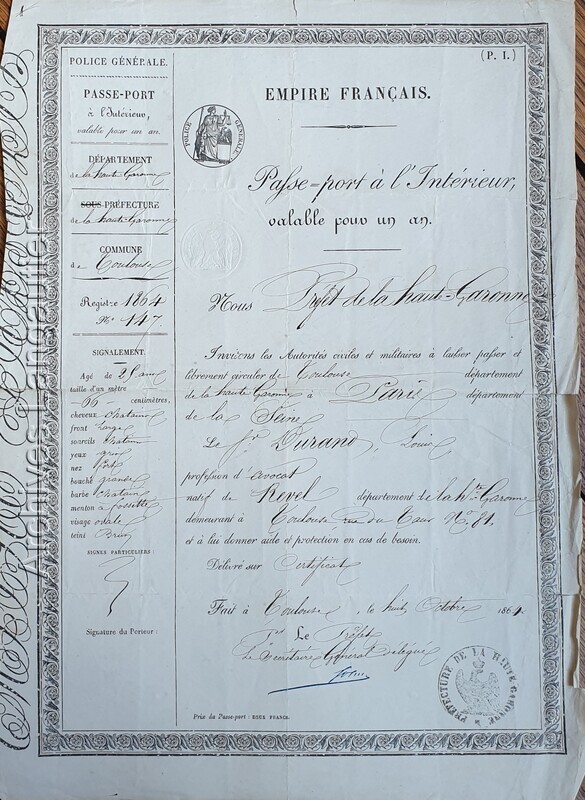 (P. I.)
POLICE GÉNÉRALE.
PASSE-PORT
à l'Intérieur,
valable pour un an.
DÉPARTEMENT
de la haute Garonne
SOUS-PRÉFECTURE
de la haute Garonne
COMMUNE
de Toulouse
Registre 1864
N° 147.
SIGNALEMENT.
Agé de ans
taille d'un mètre
66 centimètres,
cheveux chatains
front large
sourcils chatains
yeux gris
nez fort
bouche grande
barbe chatain
menton à fossette
visage ovale
teint Brun
SIGNES PARTICULIERS :
Signature du Porteur :
EMPIRE FRANÇAIS.
POLICE GÉNÉRALE
Passe-port à l'Intérieur,
valable pour un an.
Nous Préfet de la haute-Garonne
Invitons les Autorités civiles et militaires à laisser passer et
librement circuler de Toulouse département
de la haute Garonne à Paris département
de la Seine
Le Sr Durand, Louis
profession d'avocat
natif de Revel département de la hte Garonne
demeurant à Toulouse, rue du Taur N° 81,
et à lui donner aide et protection en cas de besoin.
Délivré sur Certificat
Fait à Toulouse, le huit Octobre 1864.
Pour Le Préfet
Le Secrétaire Général délégué
Prix du Passe-port : DEUX FRANCS.
PRÉFECTURE DE LA HAUTE-GARONNE
Archives Languedoc